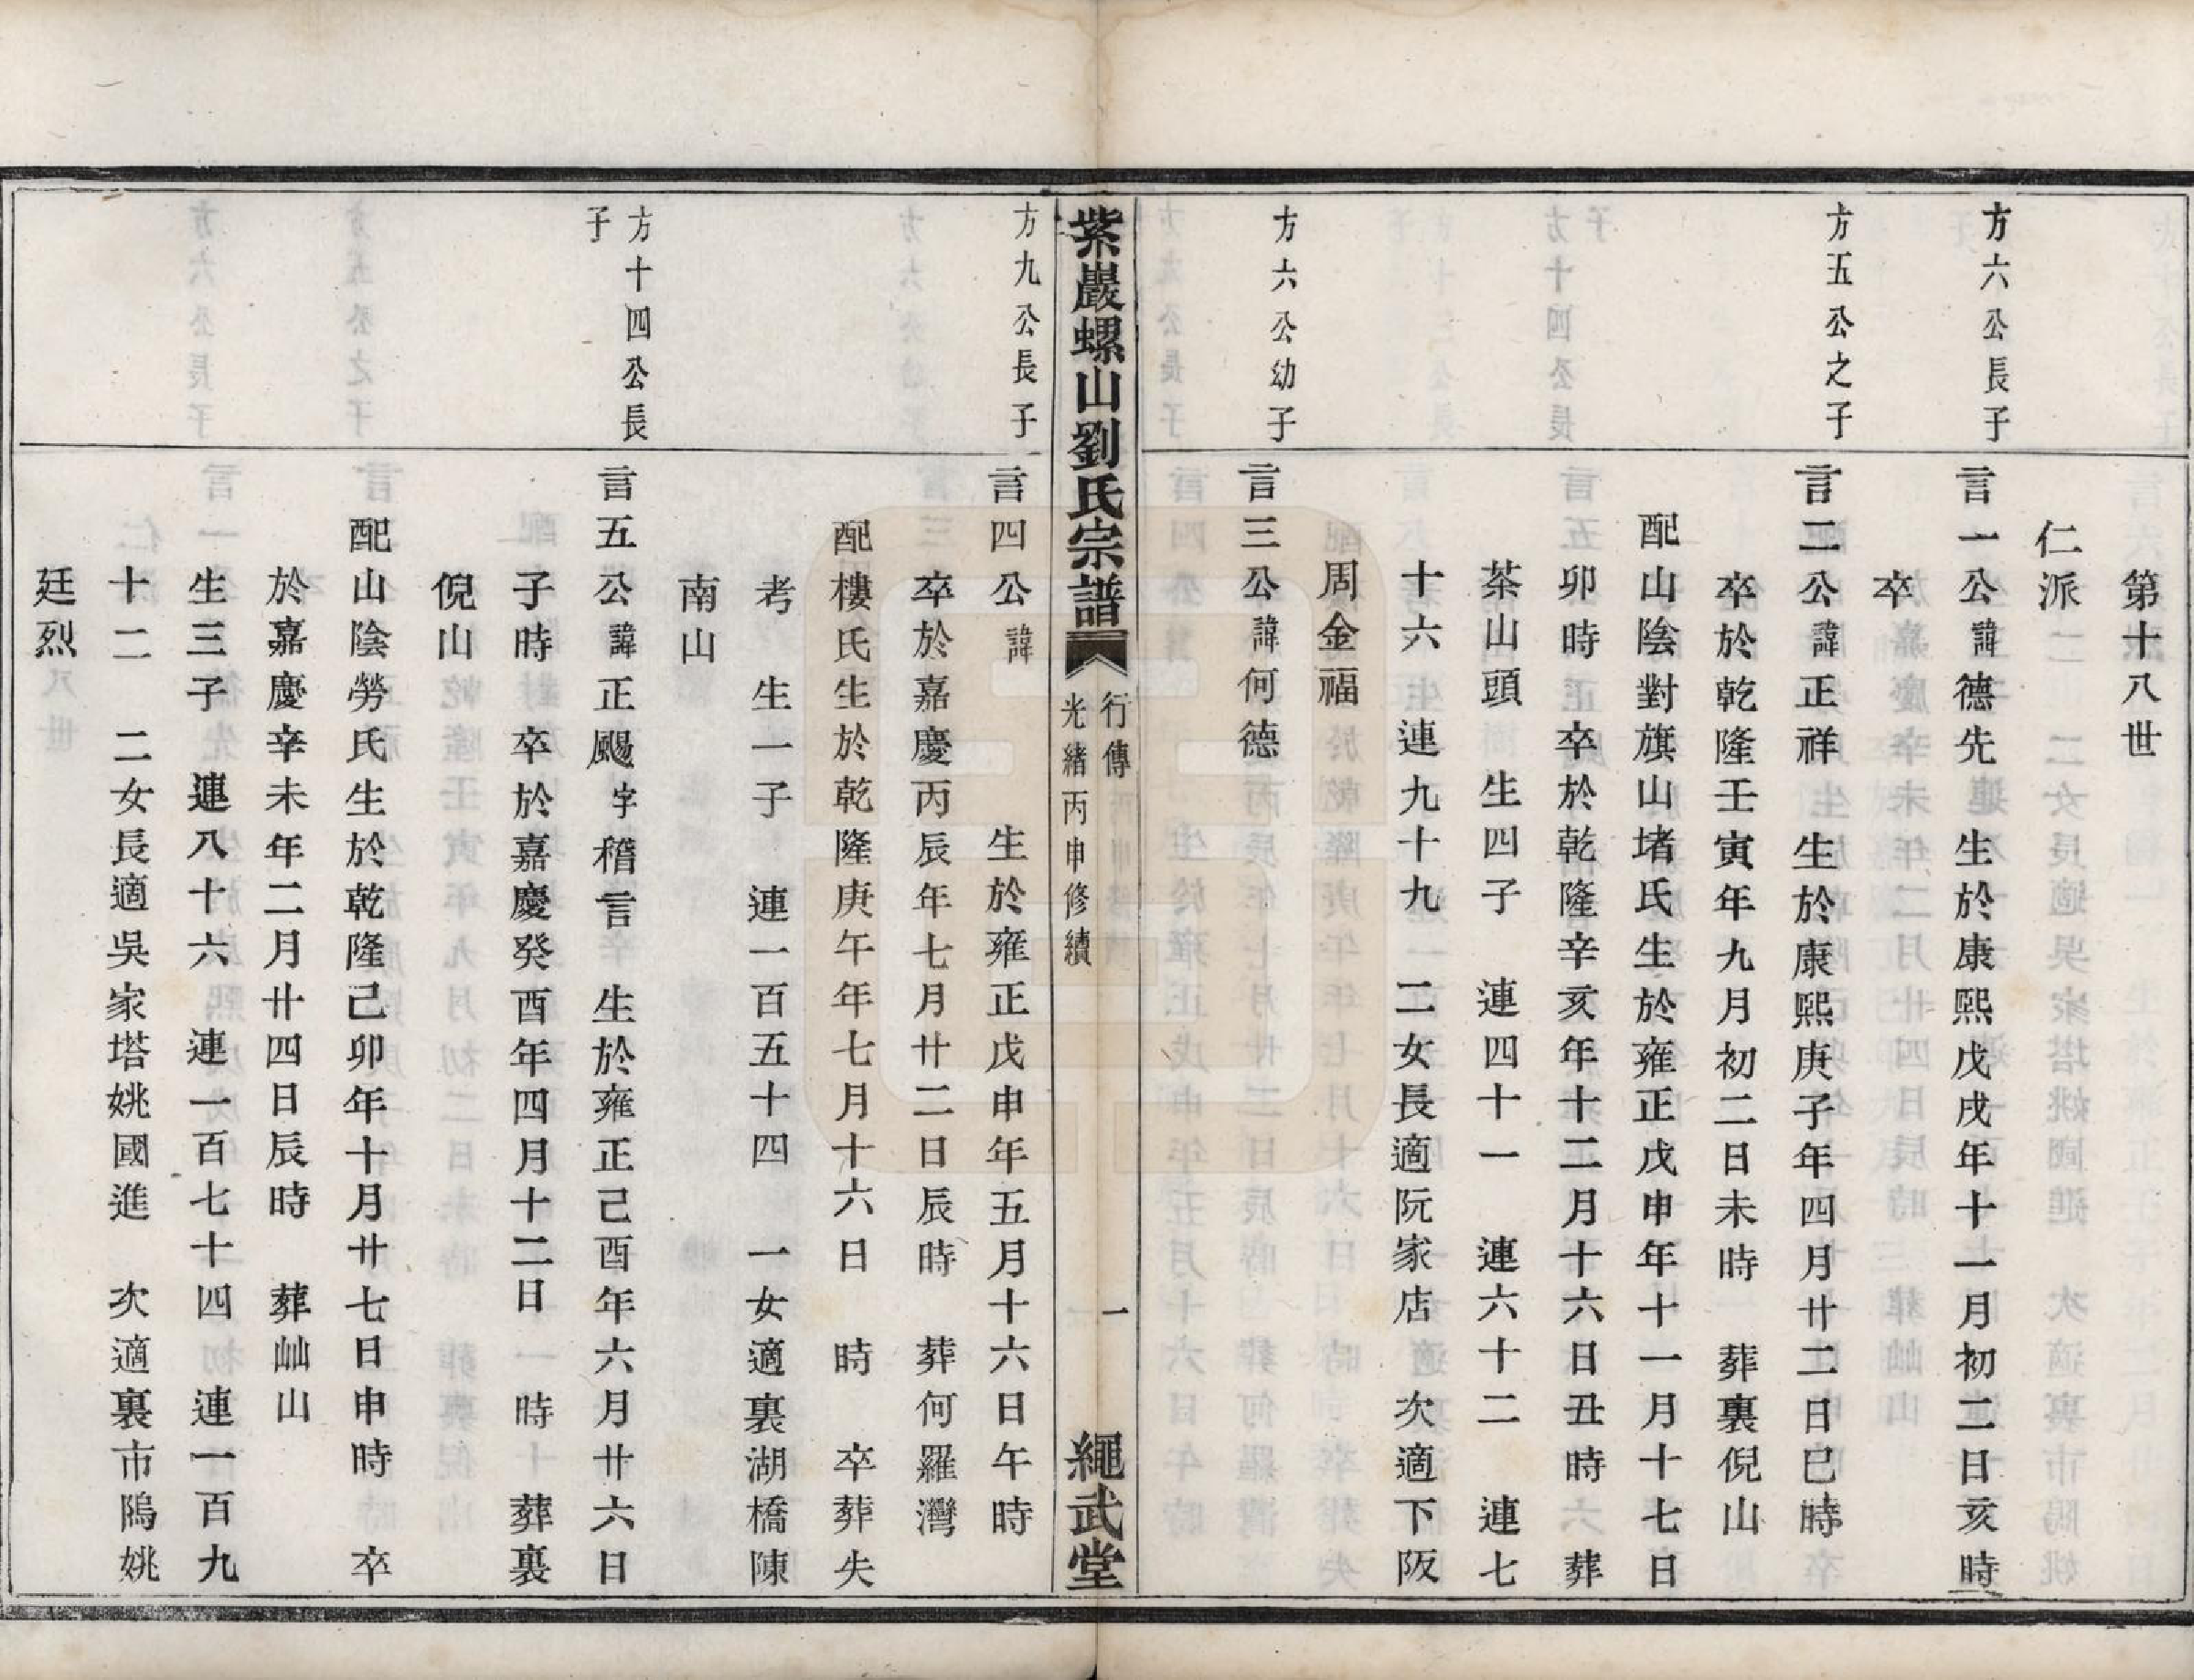 第十八世
仁派
方六公長子
言一公諱德先 生於康熙戊戌年十一月初二日亥時
卒
方五公之子
言二公諱正祥 生於康熙庚子年四月廿二日巳時
卒於乾隆壬寅年九月初二日未時 葬裏倪山
配山陰對旗山堵氏生於雍正戊申年十一月十七日
卯時 卒於乾隆辛亥年十二月十六日丑時 葬
茶山頭 生四子 連四十一 連六十二 連七
十六 連九十九 二女長適阮家店 次適下阪
周金福
方六公幼子
言三公諱何德
紫巖螺山劉氏宗譜
行傳
光緒丙申修續
一
繩武堂
方九公長子
言四公諱 生於雍正戊申年五月十六日午時
卒於嘉慶丙辰年七月廿二日辰時 葬何羅灣
配樓氏生於乾隆庚午年七月十六日 時 卒葬失
考 生一子 連一百五十四 一女適裏湖橋陳
南山
方十四公長
子
言五公諱正颺字稽言 生於雍正己酉年六月廿六日
子時 卒於嘉慶癸酉年四月十二日 時 葬裏
倪山
配山陰勞氏生於乾隆己卯年十月廿七日申時 卒
於嘉慶辛未年二月廿四日辰時 葬岫山
生三子 連八十六 連一百七十四 連一百九
十二 二女長適吳家塔姚國進 次適裏市隖姚
廷烈